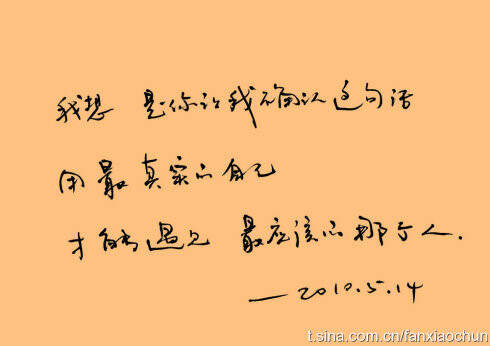 我想 是你让我确认这句话
用最真实的自己
才能遇见 最应该的那个人.
—2010.5.14
t.sina.com.cn/fanxiaochun